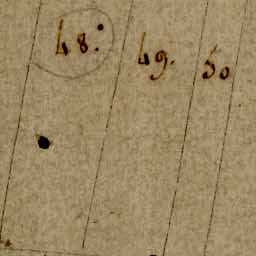 48. 49. 50